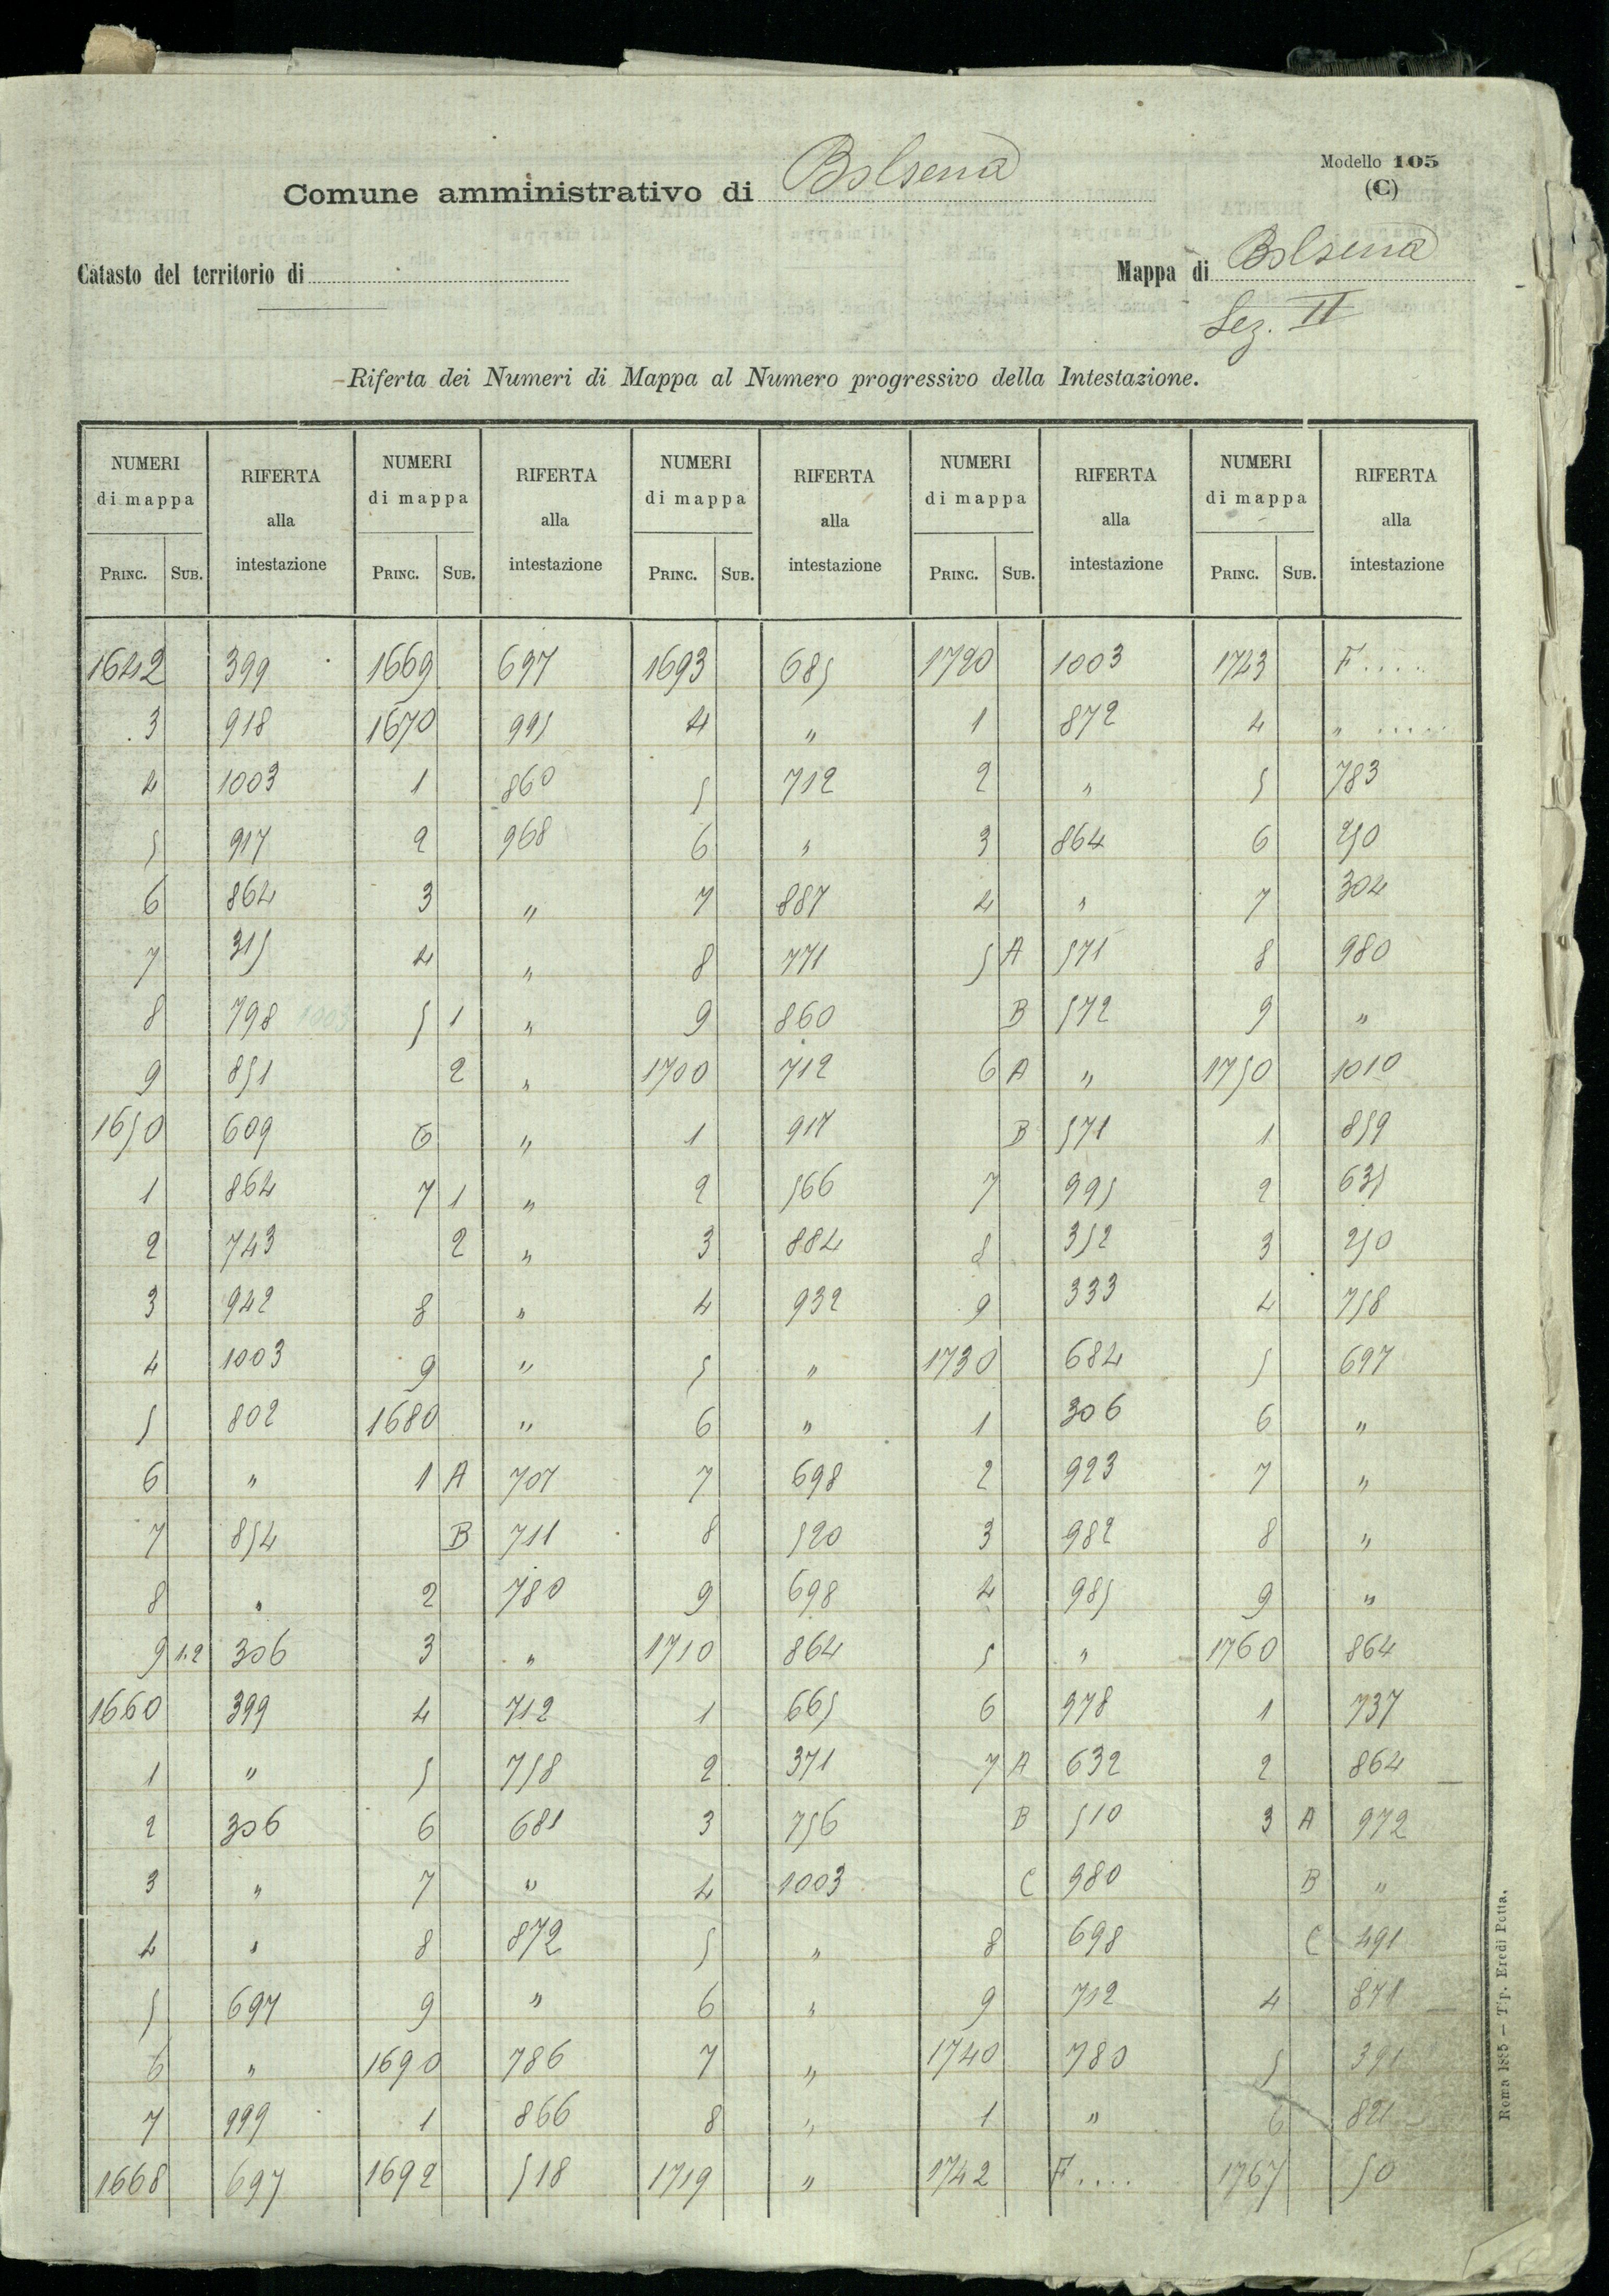 Modello 105
(C)
Comune amministrativo di Bolsena
Catasto del territorio di
Mappa di Bolsena
Sez. II
Riferta dei Numeri di Mappa al Numero progressivo della Intestazione.
NUMERI di mappa RIFERTA alla intestazione NUMERI di mappa RIFERTA alla intestazione NUMERI di mappa RIFERTA alla intestazione NUMERI di mappa RIFERTA alla intestazione NUMERI di mappa RIFERTA alla intestazione
PRINC. SUB. PRINC. SUB. PRINC. SUB. PRINC. SUB. PRINC. SUB.
1642 399 1669 697 1693 685 1720 1003 1743 F....
3 918 1670 995 4 " 1 872 4 " .....
4 1003 1 860 5 712 2 " 5 783
5 917 2 968 6 " 3 864 6 250
6 864 3 " 7 887 4 " 7 304
7 315 4 " 8 771 5 A 571 8 980
8 798 1003 5 1 " 9 860 B 572 9 "
9 851 2 " 1700 712 6 A " 1750 1010
1650 609 6 " 1 917 B 571 1 859
1 864 7 1 " 2 566 7 995 2 635
2 743 2 " 3 884 8 352 3 250
3 942 8 " 4 932 9 333 4 758
4 1003 9 " 5 " 1730 684 5 697
5 802 1680 " 6 " 1 306 6 "
6 " 1 A 707 7 698 2 923 7 "
7 854 B 711 8 520 3 982 8 "
8 " 2 780 9 698 4 985 9 "
9 1.2 306 3 " 1710 864 5 " 1760 864
1660 399 4 712 1 665 6 978 1 737
1 " 5 758 2 371 7 A 632 2 864
2 306 6 681 3 756 B 510 3 A 972
3 " 7 " 4 1003 C 980 B "
4 " 8 872 5 " 8 698 C 491
5 697 9 " 6 " 9 712 4 871
6 " 1690 786 7 " 1740 780 5 391
7 999 1 866 8 " 1 " 6
1668 697 1692 518 1719 " 1742 F.... 1767 50
Roma 1885 — Tip. Eredi Botta.